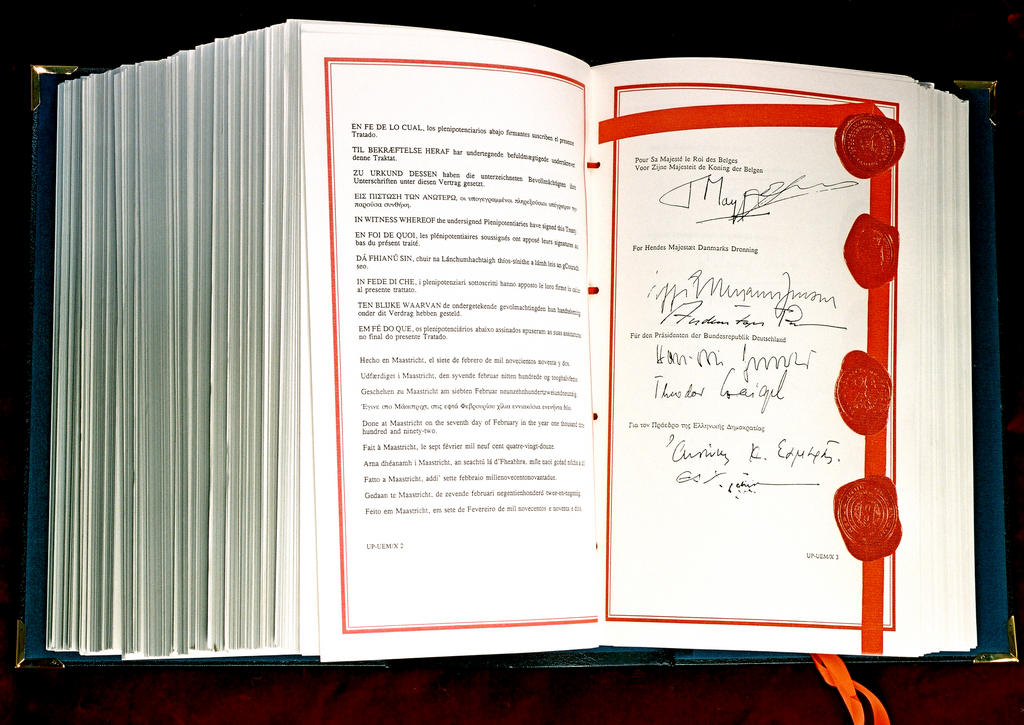 EN FE DE LO CUAL, los plenipotenciarios abajo firmantes suscriben el presente
Tratado.
TIL BEKRÆFTELSE HERAF har undertegnede befuldmægtigede underskrevet
denne Traktat.
ZU URKUND DESSEN haben die unterzeichneten Bevollmächtigten ihre
Unterschriften unter diesen Vertrag gesetzt.
ΕΙΣ ΠΙΣΤΩΣΗ ΤΩΝ ΑΝΩΤΕΡΩ, οι υπογεγραμμένοι πληρεξούσιοι υπέγραψαν την
παρούσα συνθήκη.
IN WITNESS WHEREOF the undersigned Plenipotentiaries have signed this Treaty.
EN FOI DE QUOI, les plénipotentiaires soussignés ont apposé leurs signatures au
bas du présent traité.
DÁ FHIANÚ SIN, chuir na Lánchumhachtaigh thíos-sínithe a lámh leis an gConradh
seo.
IN FEDE DI CHE, i plenipotenziari sottoscritti hanno apposto le loro firme in calce
al presente trattato.
TEN BLIJKE WAARVAN de ondergetekende gevolmachtigden hun handtekening
onder dit Verdrag hebben gesteld.
EM FÉ DO QUE, os plenipotenciários abaixo assinados apuseram as suas assinaturas
no final do presente Tratado.
Hecho en Maastricht, el siete de febrero de mil novecientos noventa y dos.
Udfærdiget i Maastricht, den syvende februar nitten hundrede og tooghalvfems.
Geschehen zu Maastricht am siebten Februar neunzehnhundertzweiundneunzig.
Έγινε στο Μάαστριχτ, στις εφτά Φεβρουαρίου χίλια εννιακόσια ενενήντα δύο.
Done at Maastricht on the seventh day of February in the year one thousand nine
hundred and ninety-two.
Fait à Maastricht, le sept février mil neuf cent quatre-vingt-douze.
Arna dhéanamh i Maastricht, an seachtú lá d'Fheabhra, míle naoi gcéad nócha a dó
Fatto a Maastricht, addi' sette febbraio millenovecentonovantadue.
Gedaan te Maastricht, de zevende februari negentienhonderd twee-en-negentig.
Feito em Maastricht, em sete de Fevereiro de mil novecentos e noventa e dois.
UP-UEM/X 2
Pour Sa Majesté le Roi des Belges
Voor Zijne Majesteit de Koning der Belgen
For Hendes Majestæt Danmarks Dronning
Für den Präsidenten der Bundesrepublik Deutschland
Theodor Waigel
Για τον Πρόεδρο της Ελληνικής Δημοκρατίας
UP-UEM/X 3